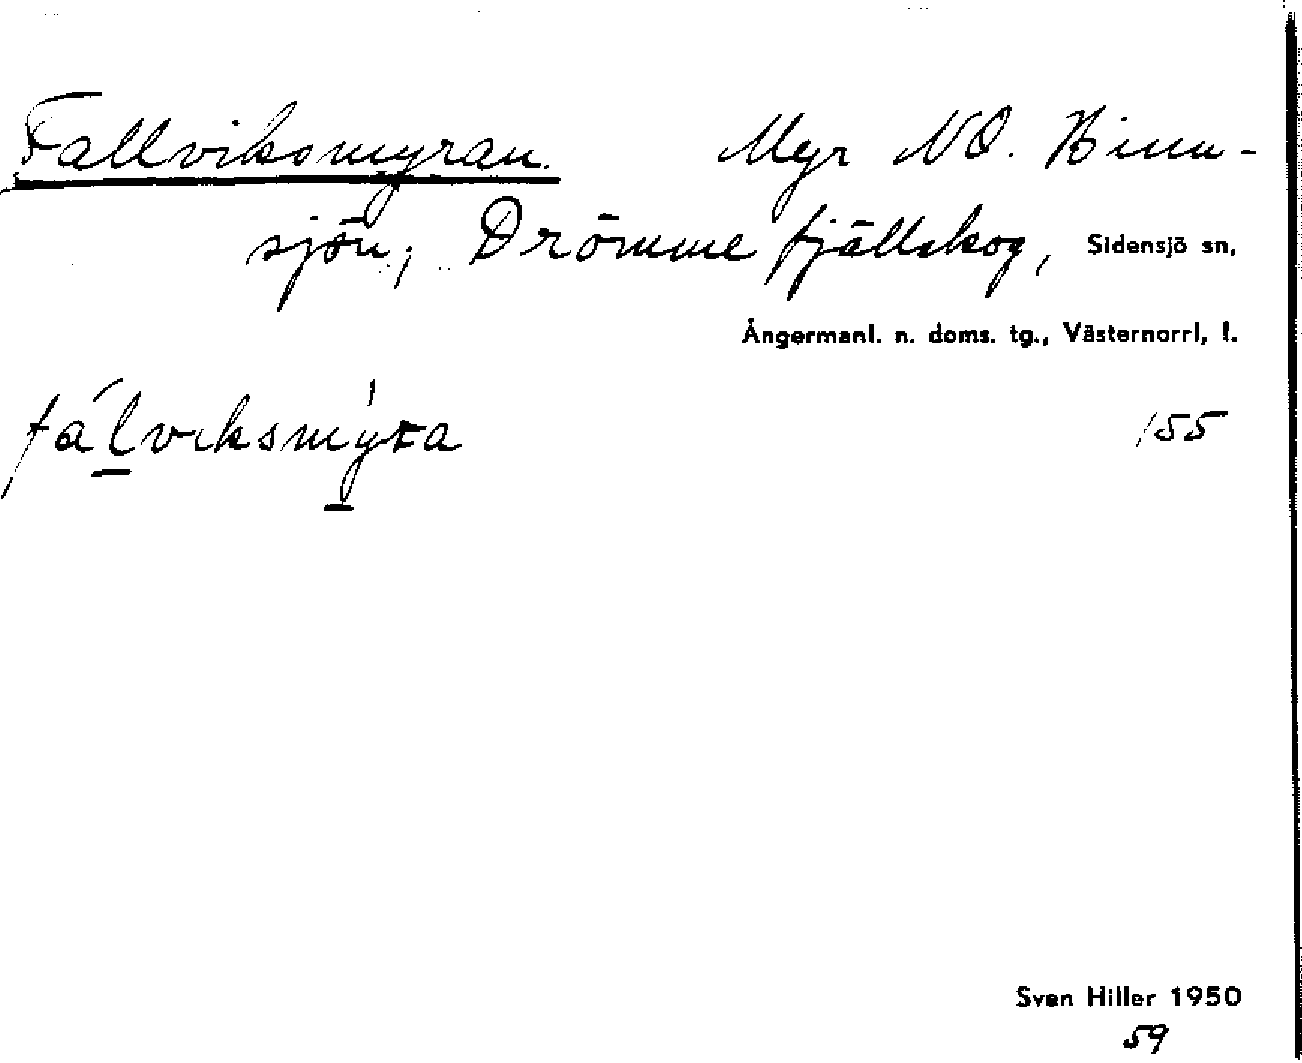 Fallviksmyran. Myr NO. Hinn-
sjön; Drömme fjällskog, Sidensjö sn,
Ångermanl. n. doms. tg., Västernorrl, l.
fálviksmýra 155
Sven Hiller 1950
59